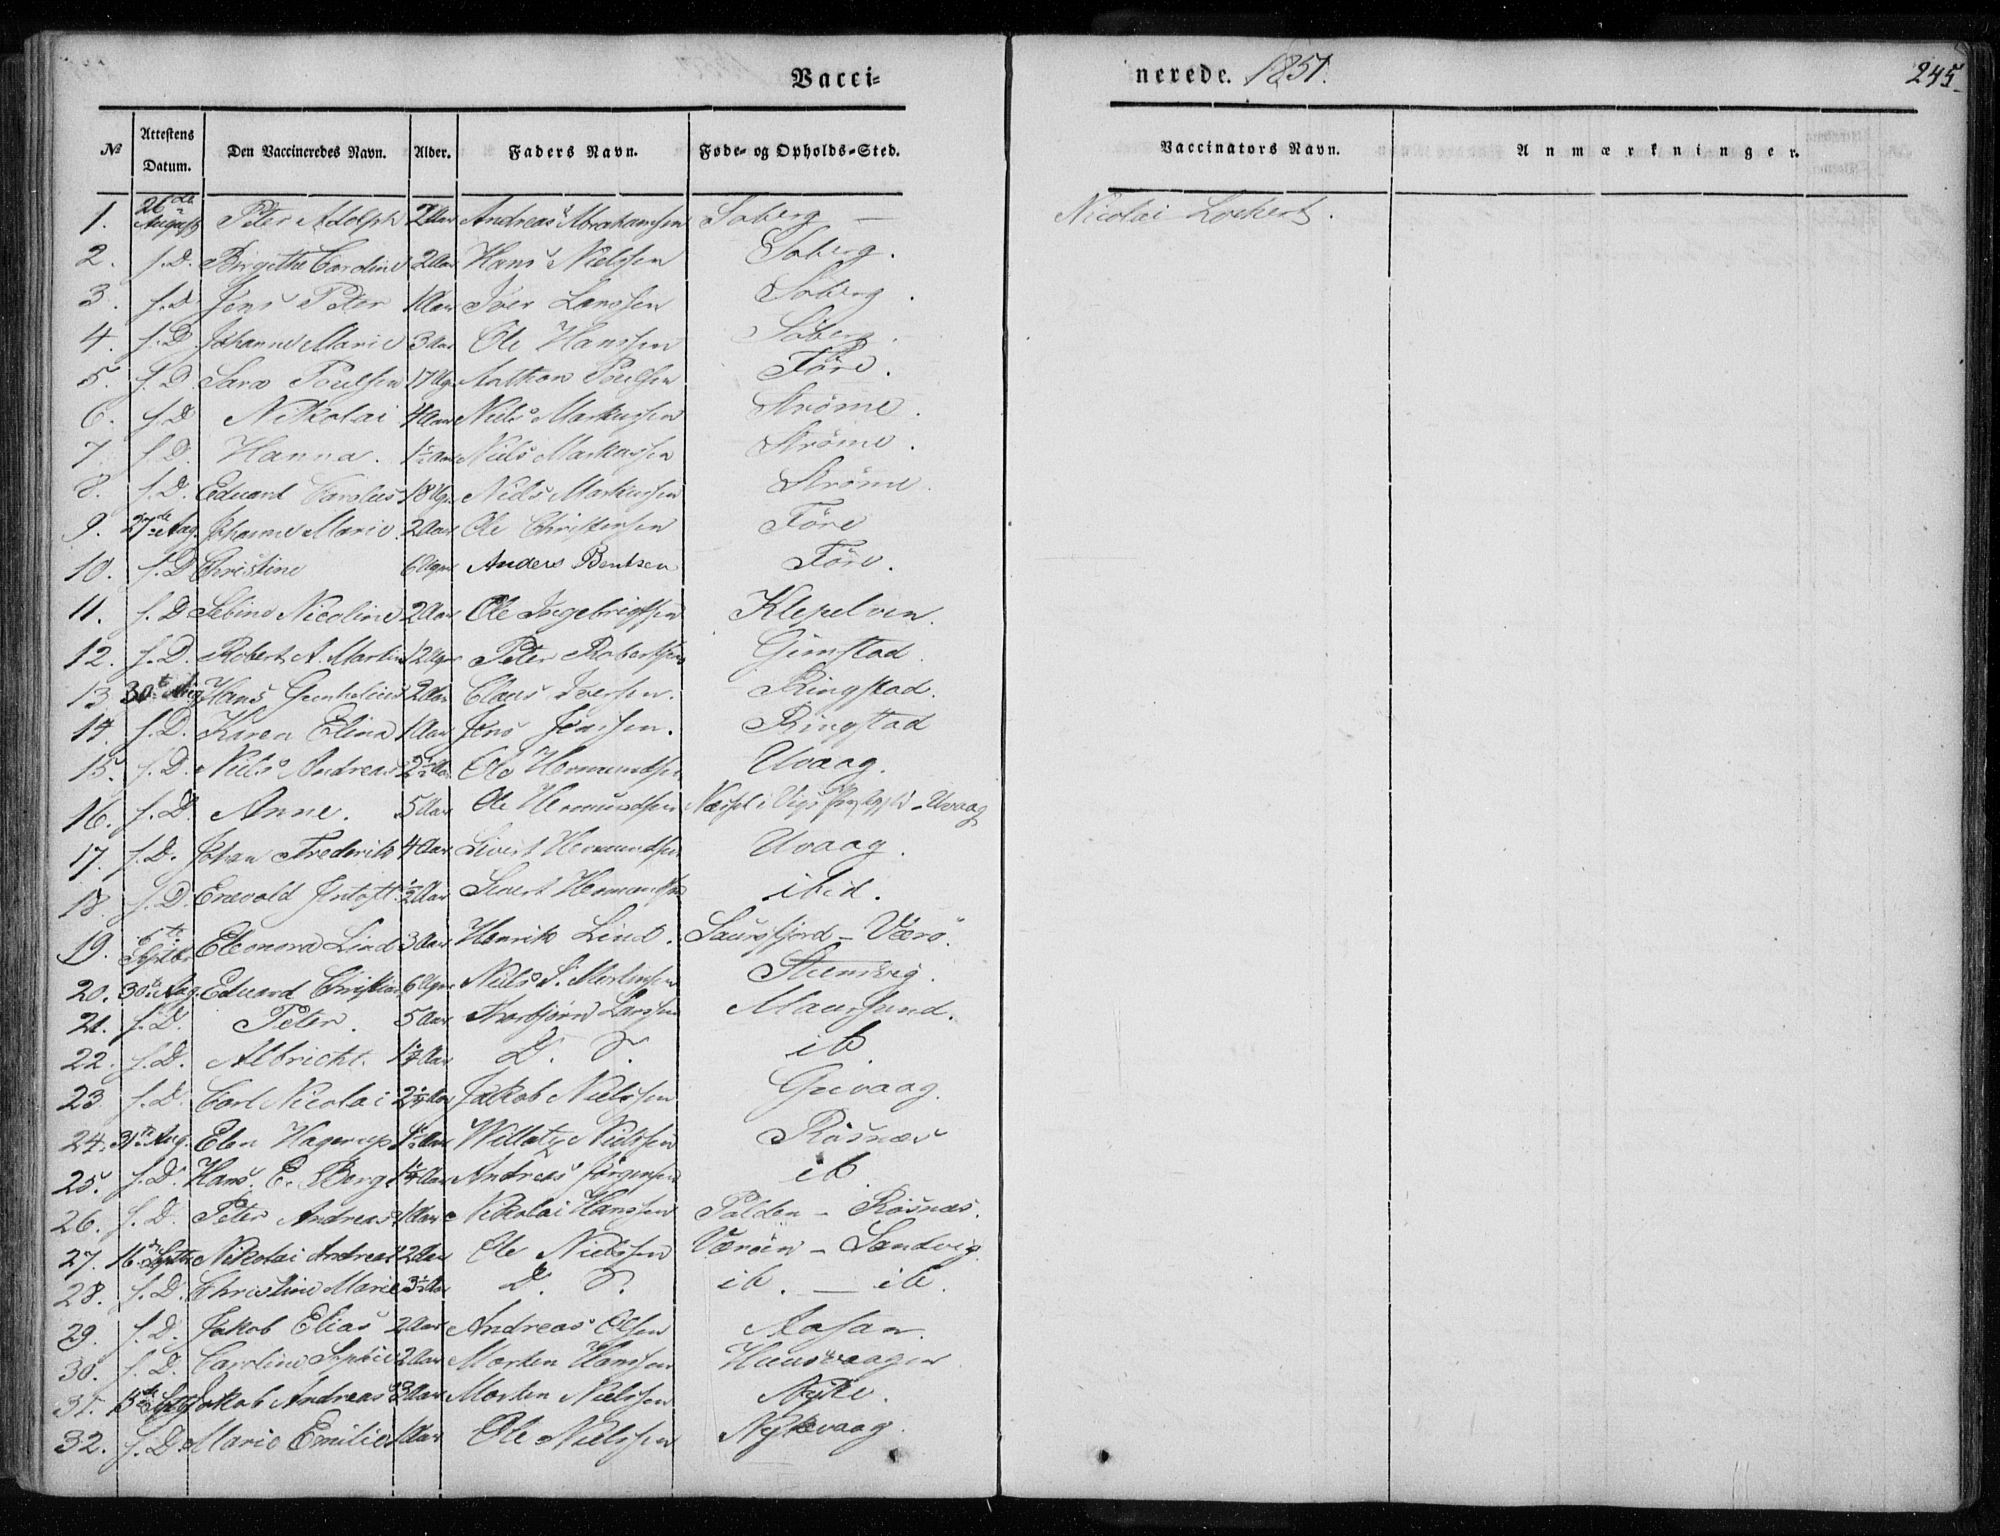 Vacci-
nerede. 1851.
245.
№ Attestens Datum. Den Vaccineredes Navn. Alder. Faders Navn. Føde- og Opholds-Sted. Vaccinators Navn. Anmærkninger.
1. 26de August Peter Adolph 2 Aar Andreas Abrahamsen Soberg — Nicolai Lockert.
2. s. D. Birgethe Cardine 2 Aar Hans Nielssen Soberg.
3. s. D Jens Peter 1 Aar Iver Larssen Soberg.
4. s. D. Johanne Marie 3 Aar Ole Hanssen Soberg.
5. s. D. Sara Poulsen 17 Ugr Anthon Poulsen Före.
6. s. D Nikolai 4 Aar Niels Markussen Strøme.
7. s. D. Hanna. 1½ Aar Niels Markussen Strøme.
8. s. D. Eduard Carolus 18 Ugr Niels Markussen Strøme.
9. 27de Aug. Johanne Marie. 2 Aar Ole Christensen Före
10. s. D Christine 6 Ugr Anders Bentsen Före.
11. s. D Sebine Nicoline 2 Aar Ole Ingebrigtsen Klepelven.
12. s. D. Robert A. Martin 12 Ugr Peter Robertsen Gimstad.
13 30te Aug Hans 2 Aar Claus Iversen. Ringstad.
14. s. D. Karen Elina 1 Aar Jens Jenssen. Ringstad
15. s. D. Niels Andreas 2½ Aar Ole Hermundsen Uvaag.
16. s. D. Anne. 5 Aar Ole Hermundsen i - Uvaag
17. s. D. Johan Frederik 4 Aar Sivert Hermundsen Uvaag.
18. s. D. Enevold Jentoft ½ Aar Sivert Hermundsen ibid.
19. 6te Septbr Eleonora Lind 3 Aar Henrik Lind. Saursfjord - Værö.
20. 30te Aug. Eduard Christian 6 Ugr Niels S. Mortensen Steensvig.
21. s. D. Peter. 5 Aar Thorbjörn Larssen Maursund.
22. s. D. Albricht. 1¼ Aar D. S. ib.
23 s. D. Carl Nicolai 2¼ Aar Jakob Nielssen Guvaag.
24. 31te Aug. Elen Hagerup 1½ Aar Willatz Nielssen Rösnæs
25. s. D. Hans. E. Berg 1¼ Aar Andreas Jørgensen ib.
26. s. D. Peter Andreas 1 Aar Nikolai Hanssen Polden - Rösnæs.
27. 16de Septbr Nikolai Andreas 2 Aar Ole Nielssen Værøen - Sandvig
28. s. D. Christine Marie 3½ Aar D. S. ib. — ib.
29. s. D. Jakob Elias 2 Aar Andreas Olsen Aasan.
30. s. D. Caroline Sophie 2 Aar Morten Hanssen Huusvaagen
31. Jakob Andreas 3 Aar Morten Nielssen Nyke.
32. s. D. Marie Emilie 1 Aar Ole Nielssen Nykvaag.